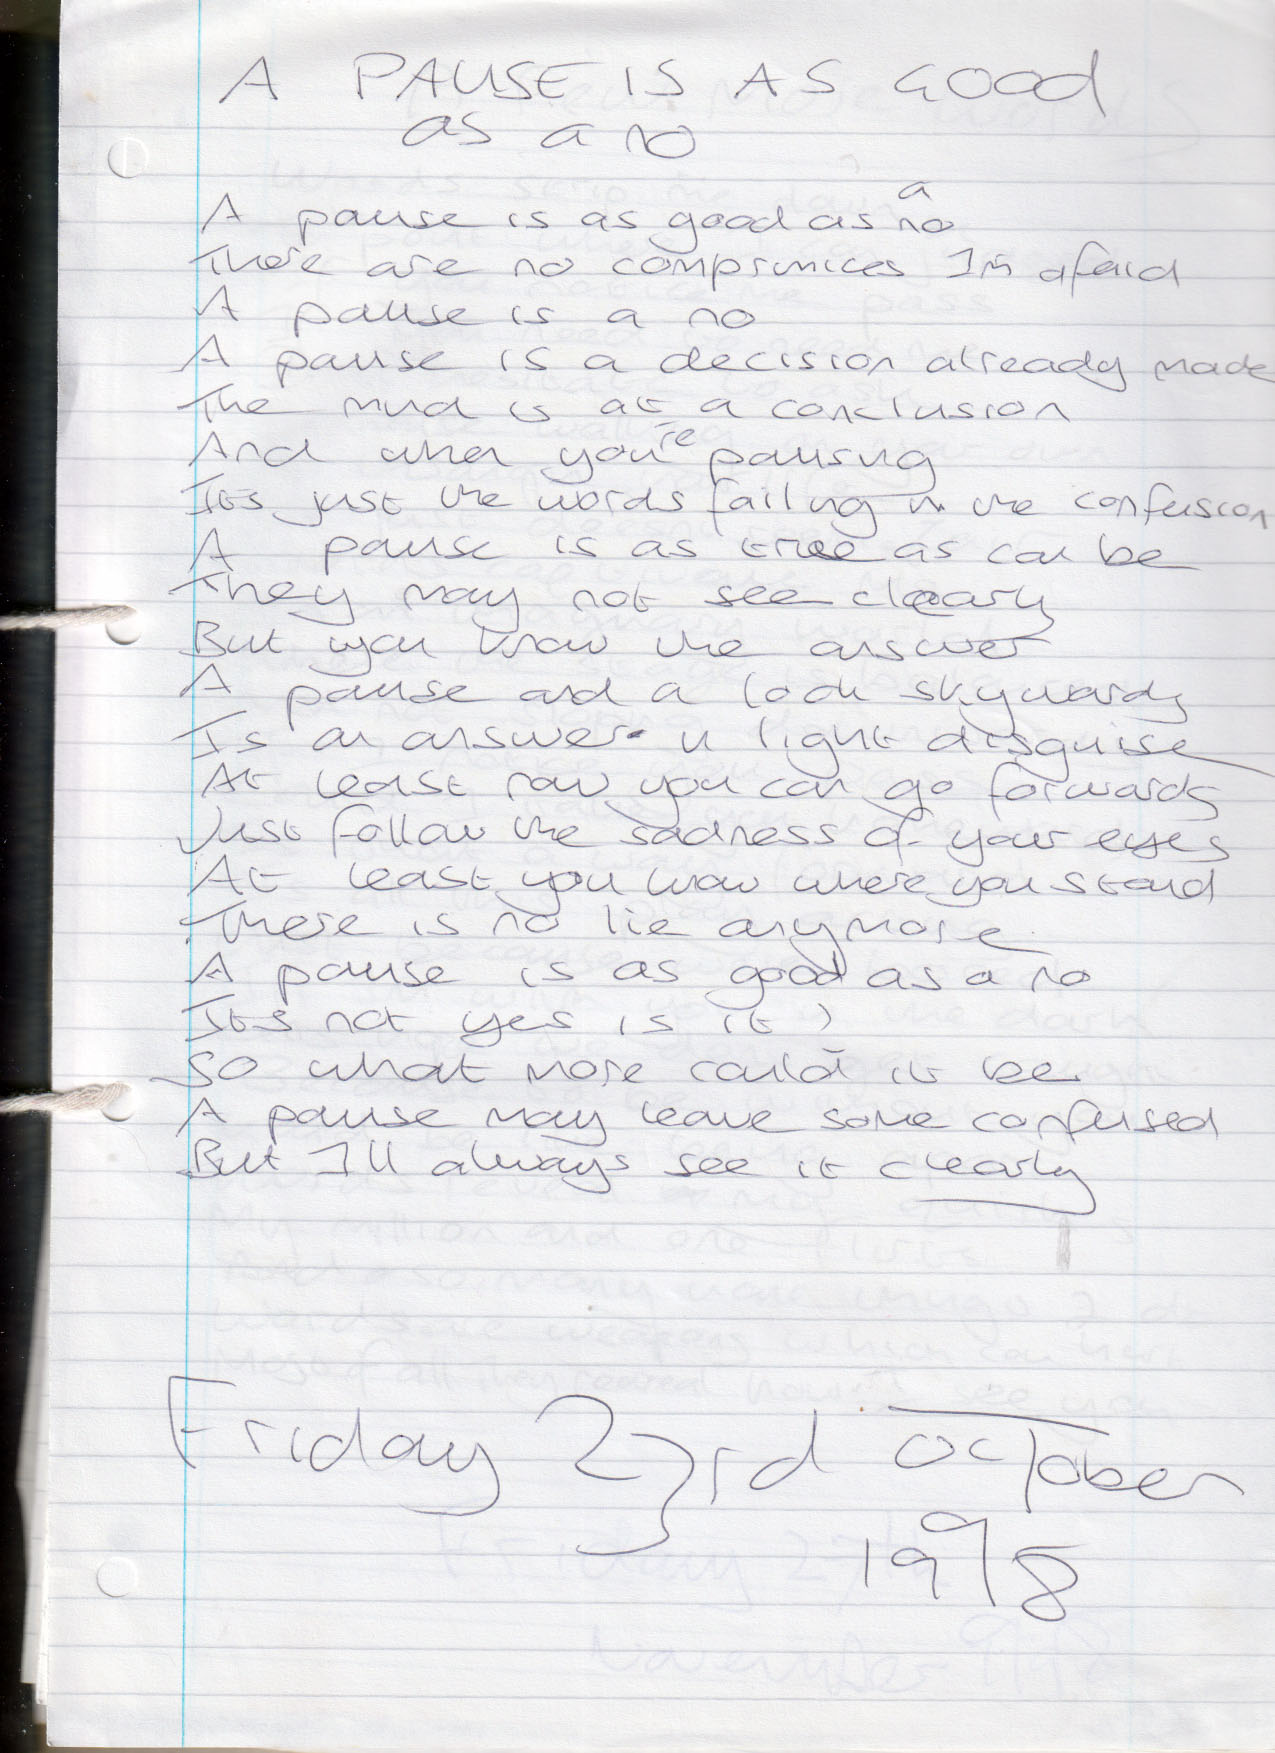 A PAUSE IS AS GOOD
as a no
A pause is as good as a no
There are no comprimices I'm afaid
A pause is a no
A pause is a decision already made
The mind is at a conclusion
And when you're pausing
It's just the words failing in the confusion
A pause is as true as can be
They may not see clearly
But you know the answer
A pause and a look skywards
Is an answer in light disguise
At least now you can go forwards
Just follow the sadness of your eyes
At least you know where you stand
There is no lie anymore
A pause is as good as a no
It's not yes is it?
So what more could it be
A pause may leave some confused
But I'll always see it clearly
Friday 23rd October
1998